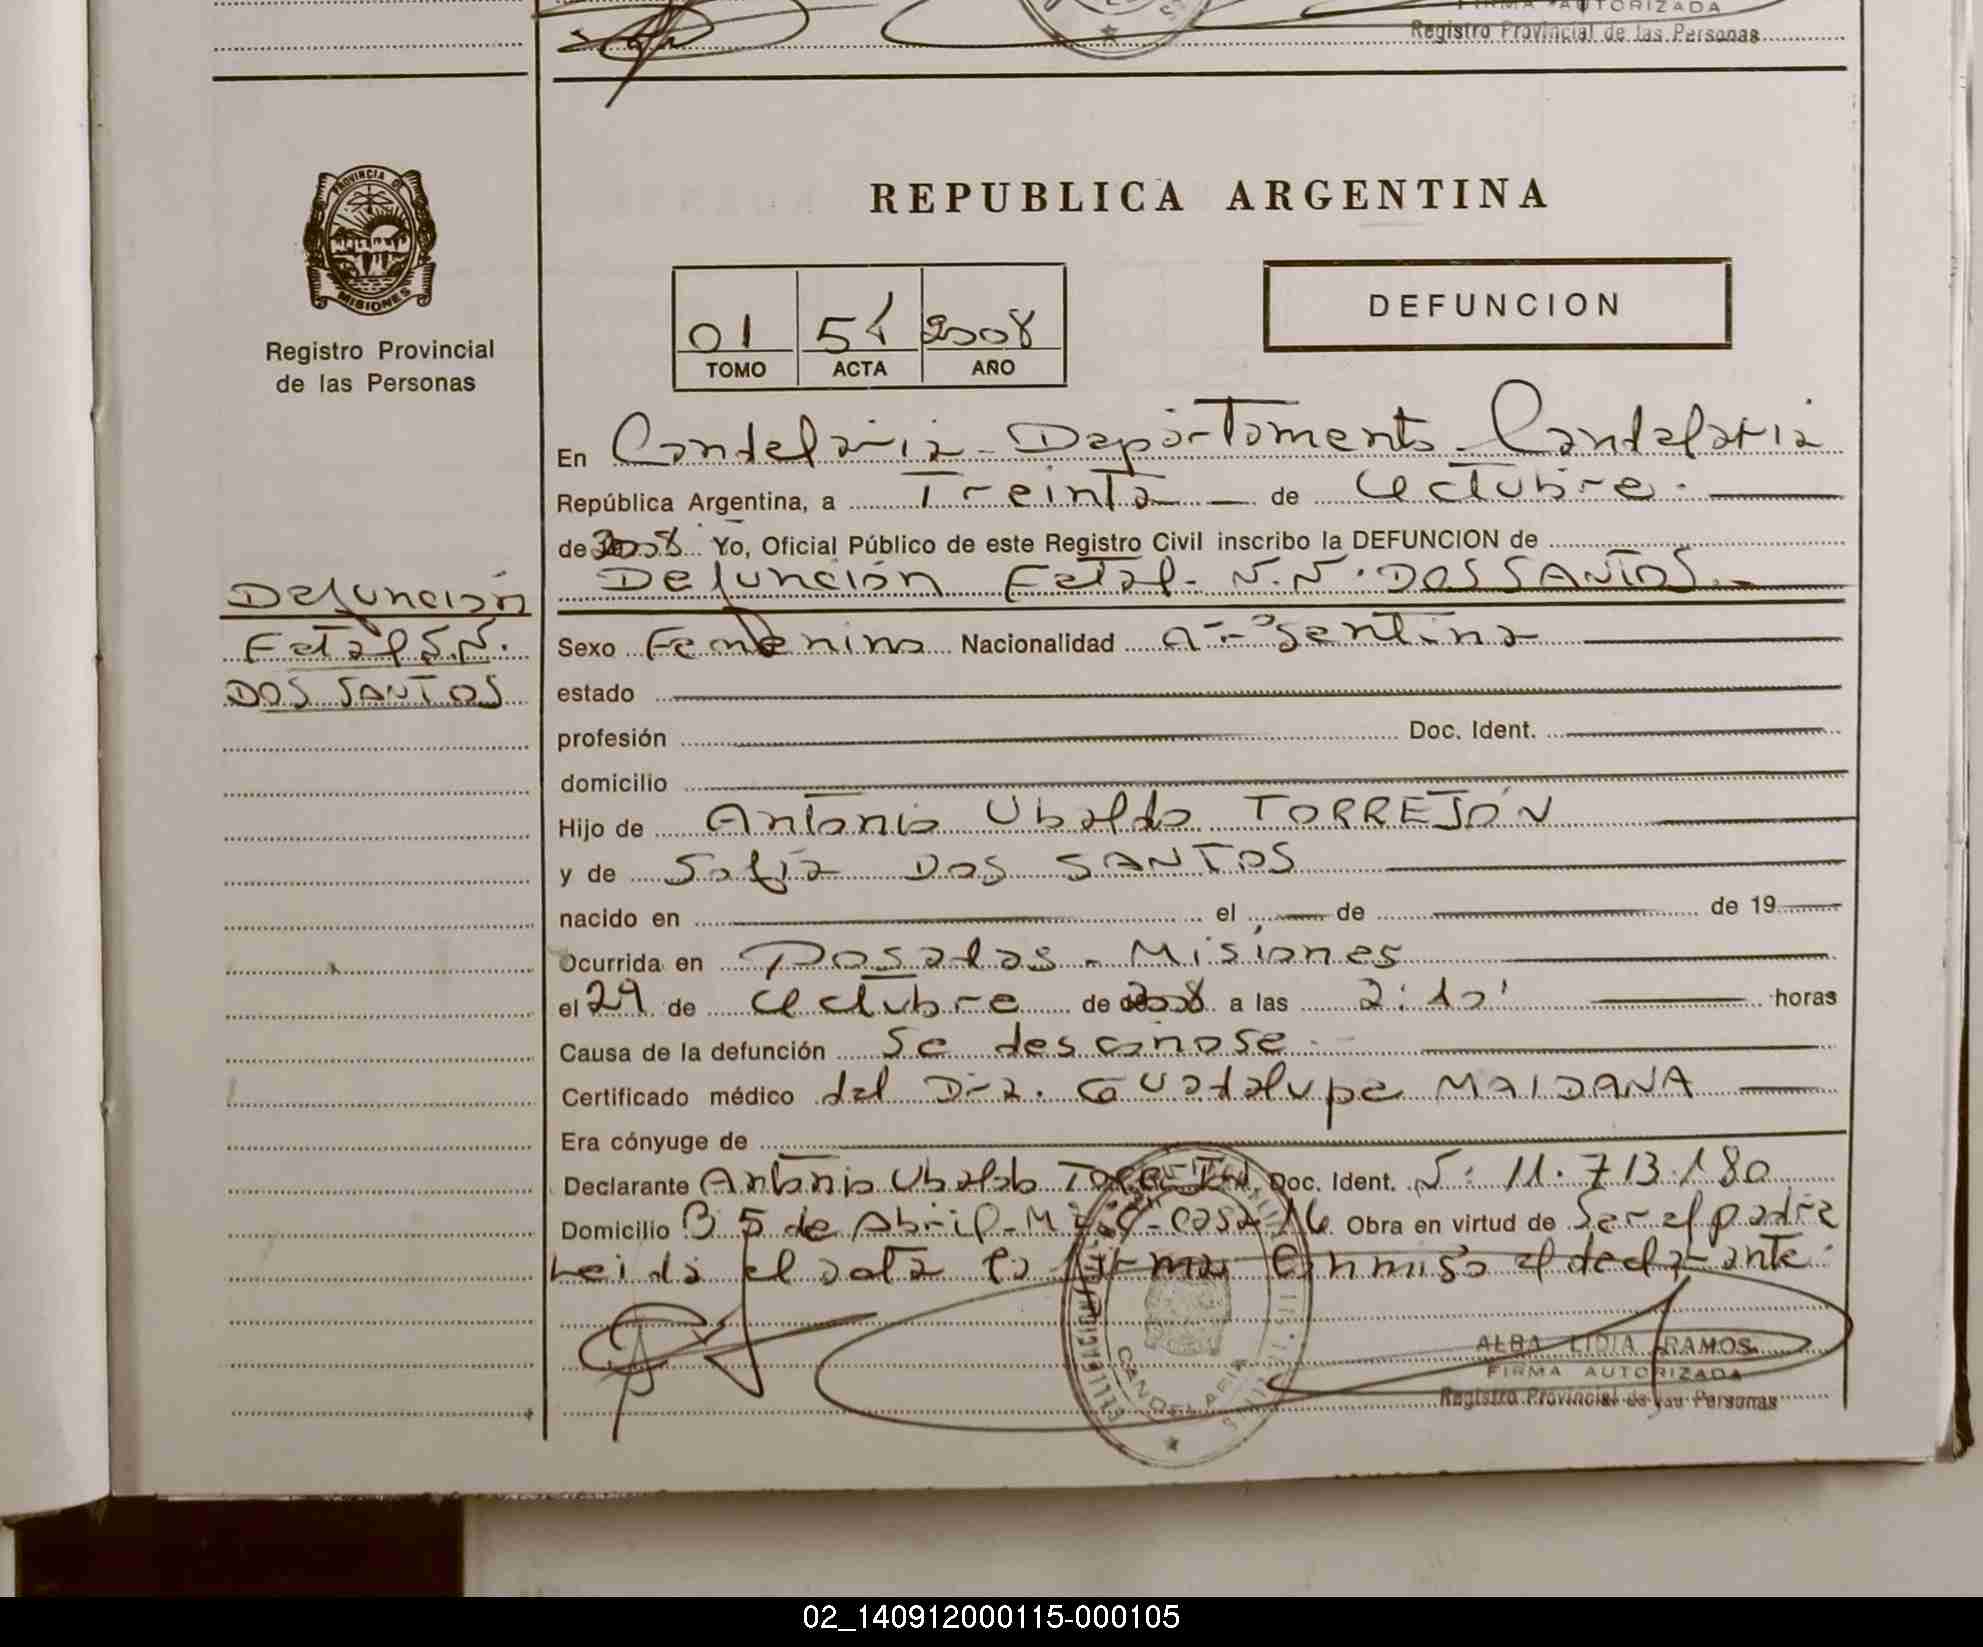 FIRMA AUTORIZADA
Registro Provincial de las Personas
PROVINCIA DE
MISIONES
Registro Provincial
de las Personas
REPUBLICA ARGENTINA
01 51 2008
TOMO ACTA AÑO
DEFUNCION
En Candelaria - Departamento Candelaria
República Argentina, a Treinta de Octubre
de 2008 Yo, Oficial Público de este Registro Civil inscribo la DEFUNCION de
Defunción Fetal - N.N. DOS SANTOS
Defunción
Fetal N.N.
DOS SANTOS
Sexo Femenino Nacionalidad Argentina
estado
profesión Doc. Ident.
domicilio
Hijo de Antonio Ubaldo TORREJÓN
y de Sofia DOS SANTOS
nacido en el de de 19
Ocurrida en Posadas - Misiones
el 29 de Octubre de 2008 a las 2:10' horas
Causa de la defunción Se desconose
Certificado médico del Dra. Guadalupe MAIDANA
Era cónyuge de
Declarante Antonio Ubaldo TORREJÓN Doc. Ident. N: 11.713.180
Domicilio B 5 de Abril - casa 16 Obra en virtud de Ser el padre
Leida el acta la firma conmigo el declarante
ALBA LIDIA RAMOS
FIRMA AUTORIZADA
Registro Provincial de las Personas
02_140912000115-000105